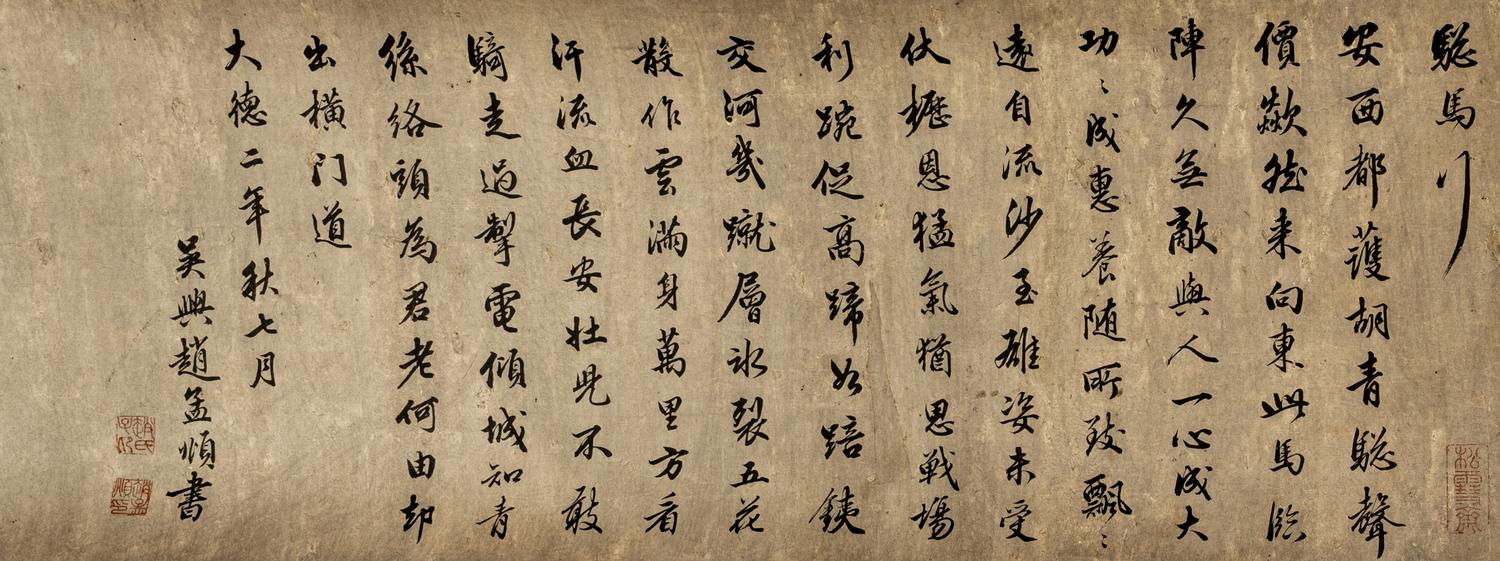 騘馬行
安西都護胡青騘聲
價歘然来向東此馬臨
陣久無敵與人一心成大
功〻成惠養随所致飄〻
遠自流沙至雄姿未受
伏櫪恩猛氣猶思戰場
利踠促高蹄如踣鐵
交河幾蹴層氷裂五花
散作雲滿身萬里方看
汗流血長安壯兒不敢
騎走過掣電傾城知青
絲絡頭為君老何由却
出橫门道
大德二年秋七月
吳興趙孟頫書
松雪齋
趙氏子昂
趙孟頫印